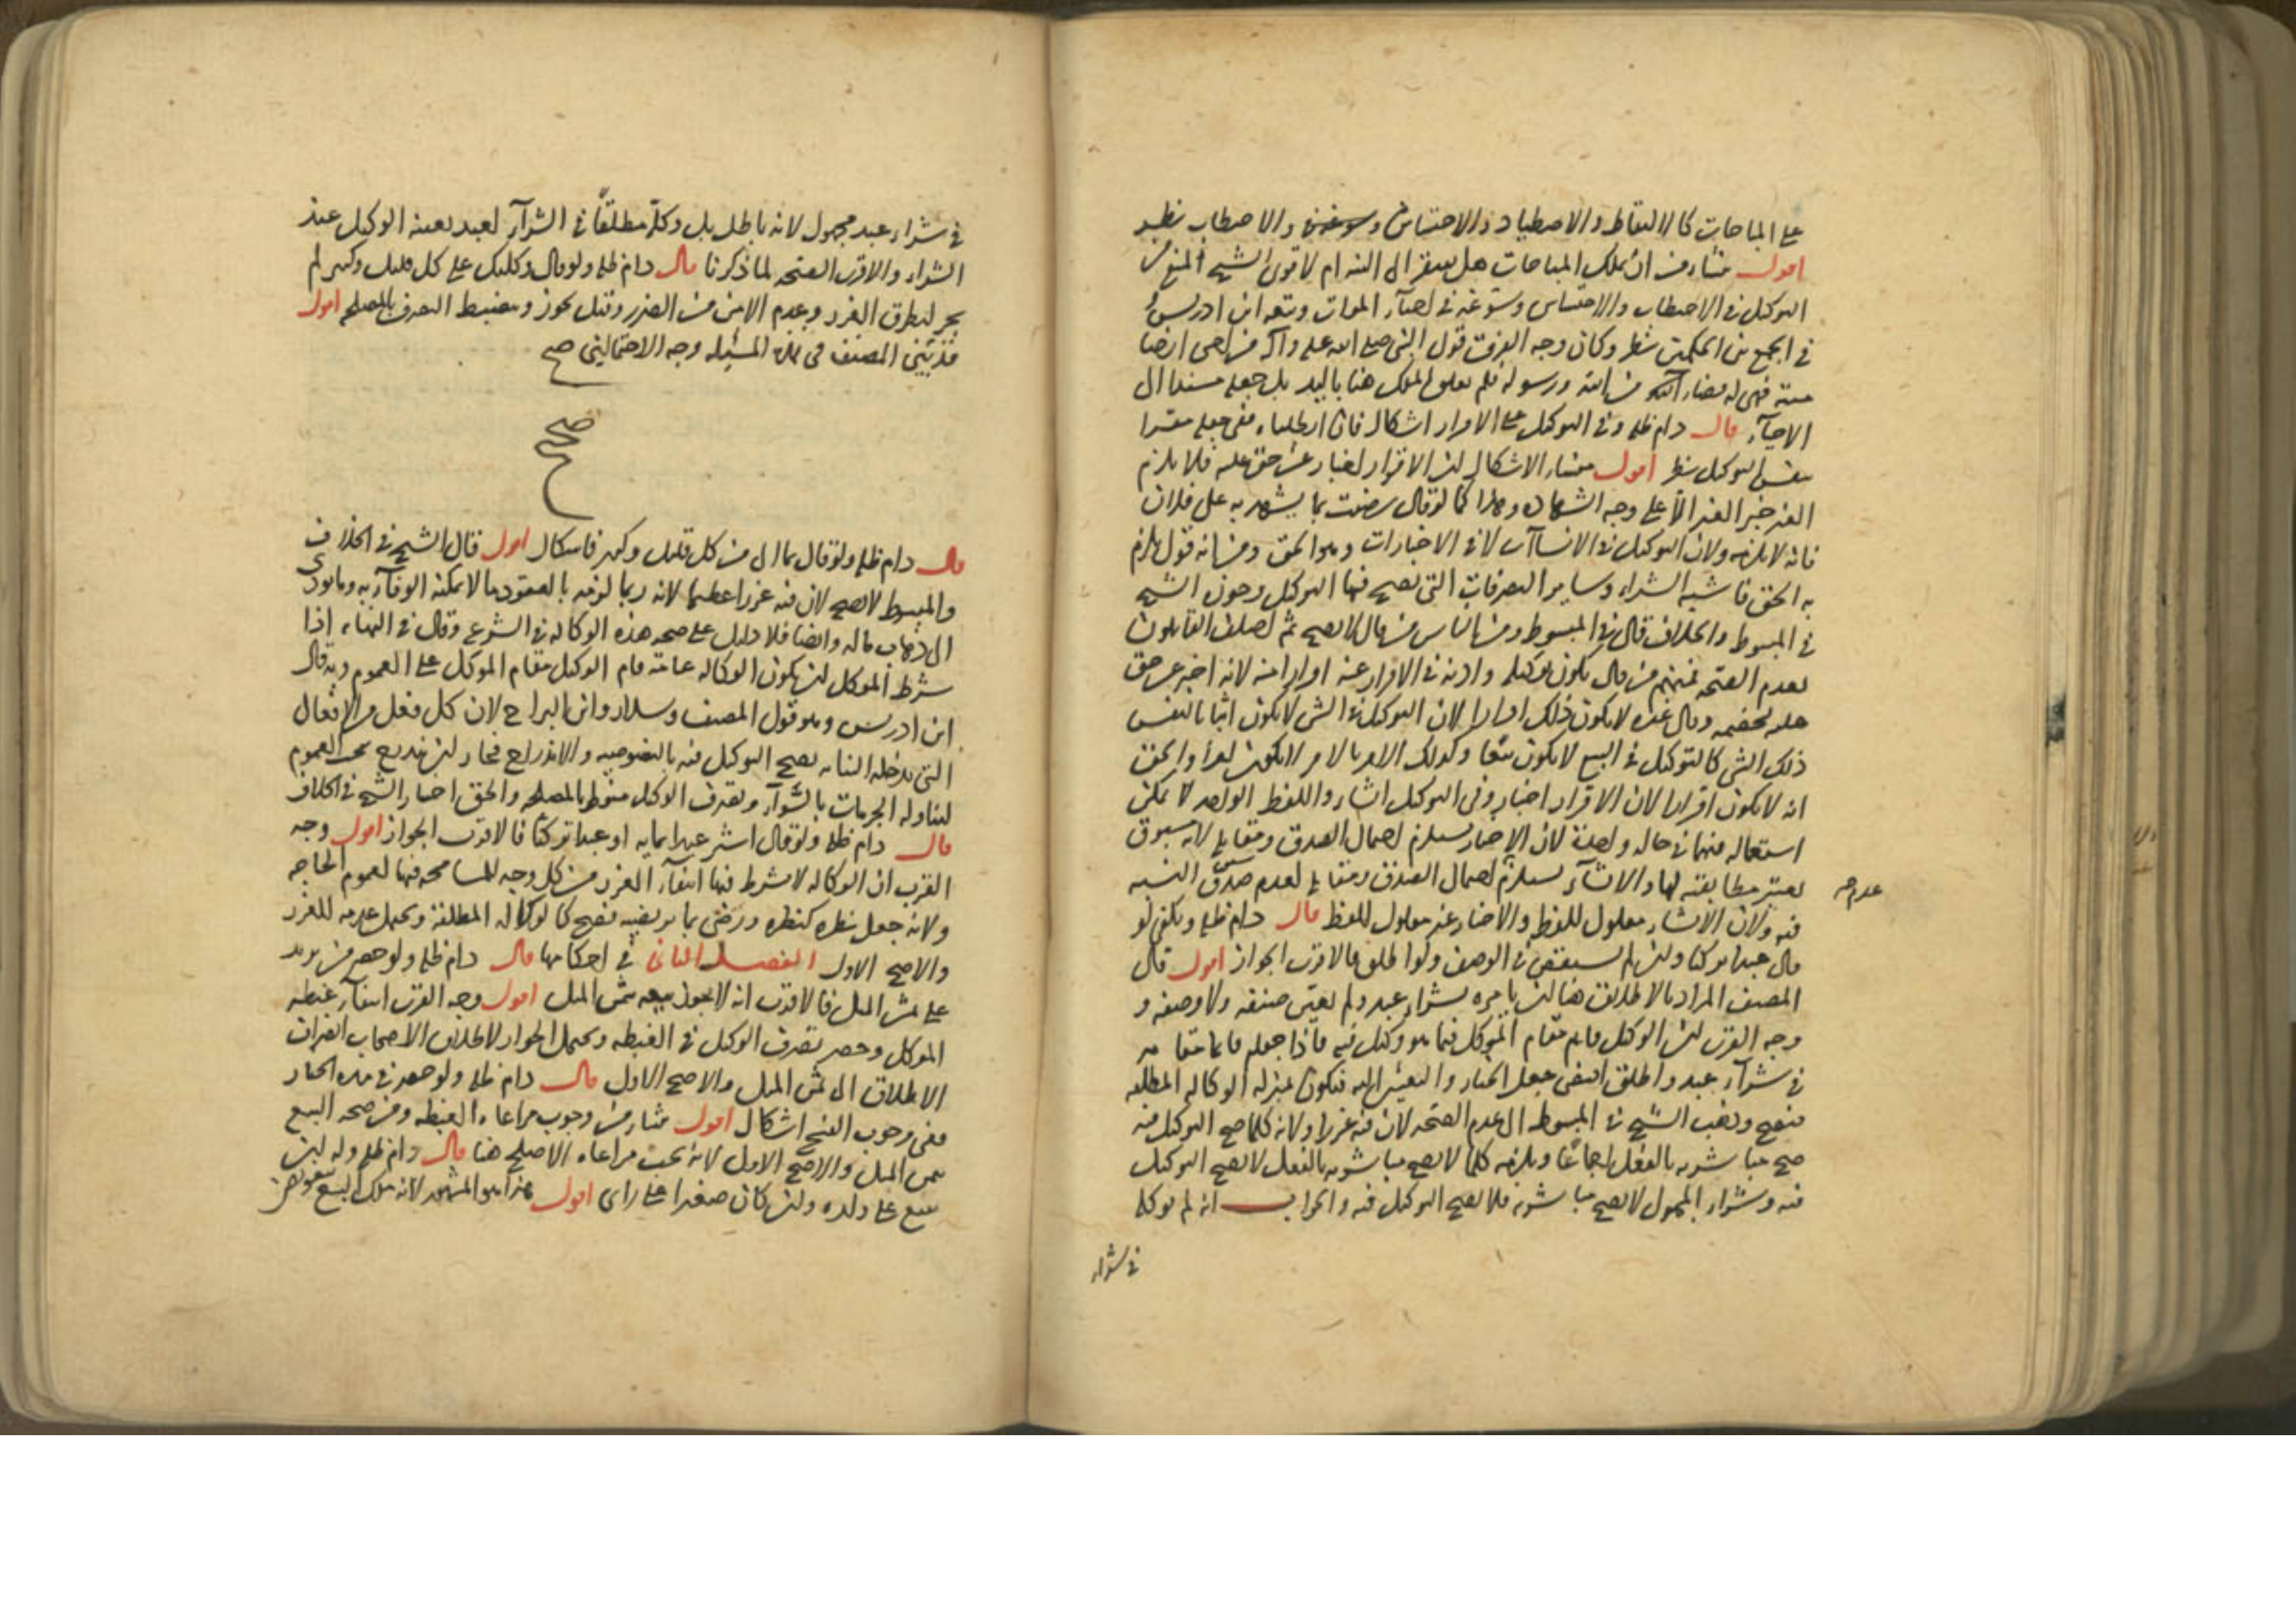 على المباحات كالالتقاط والاصطياد والاحتشاش والاحتطاب نظر
اقول منشاء من ان تملك المباحات هل يفتقر الى النيه ام لا قوى الشيخ المنع من
التوكيل في الاحتطاب والاحتشاش وسوغه في احيآء الموات وتبعه ابن ادريس
في الجمع بين الحكمين نظر وكان وجه الفرق قول النبي صلى الله عليه وآله من احيى ارضا
ميتة فهي له من الله ورسوله فلم يعلق الملك هنا باليد بل جعله مستندا الى
الاحيآء قال دام ظله وفي التوكيل على الاقرار اشكال فان ابطلناه ففي جعله مقرا
بنفس التوكيل نظر اقول منشاء الاشكال لان الاقرار اخبار عن حق عليه فلا يلزم
الغير خبر الغير الا على وجه الشهاده وهذا كما لو قال رضيت بما يشهد به على فلان
فانه لا يلزمه ولان التوكيل في الانشاآت لا في الاخبارات وهو الحق ومن انه قول يلزم
به الحق فاشبه الشراء وساير التصرفات التي يصح فيها التوكيل وجوزه الشيخ
في المبسوط والخلاف قال في المبسوط ومن الناس من قال لا يصح ثم اختلف القايلون
بعدم الصحه فمنهم من قال يكون توكيله واذنه في الاقرار عنه اقرارا منه لانه اخبر عن حق
عليه لخصمه وقال غيره لا يكون ذلك اقرارا لان التوكيل في الشي لا يكون اثباتا لنفس
ذلك الشي كالتوكيل في البيع لا يكون بيعا وكذلك الامر بالامر لا يكون امرا والحق
انه لا يكون اقرارا لان الاقرار اخبار وفي التوكيل انشاء واللفظ الواحد لا يمكن
استعماله فيهما في حالة واحدة لان الاخبار يستلزم احتمال الصدق ومقابله لانه مسبوق
يعتبر مطابقته لها والانشآء يستلزم احتمال الصدق ومقابله لعدم صدق النسبه
عدم صح
فيه ولان الانشاء معلول للفظ والاخبار غير معلول للفظ قال دام ظله ويكفي لو
قال عبدا تركيا وان لم يستقص في الوصف ولو اطلق فالاقرب الجواز اقول قال
المصنف المراد بالاطلاق هنا ان يامره بشراء عبد ولم يعين صنفه ولا وصفه و
وجه القرب ان الوكيل قايم مقام الموكل فيما هو وكيل فيه فاذا جعله قايما مقامه
في شرآء عبد واطلق اقتضى جعل الخيار والتعيين اليه فيكون بمنزله الوكاله المطلقه
فيصح وذهب الشيخ في المبسوط الى عدم الصحه لان فيه غررا ولانه كلما صح التوكيل فيه
صح مباشرته بالفعل اجماعا ويلزمه كلما لا يصح مباشرته بالفعل لا يصح التوكيل
فيه وشراء المجهول لا يصح مباشرته فلا يصح التوكيل فيه والجواب انه لم يوكله
في شراء
في شراء عبد مجهول لانه باطل بل وكله مطلقاً في الشرآء لعبد يعينه الوكيل عند
الشراء والاقرب الصحه لما ذكرنا قال دام ظله ولو قال وكلتك على كل قليل وكثير لم
يجز لتطرق الغرر وعدم الامن من الضرر وقيل يجوز وينضبط التصرف بالمصلحه اقول
قد بين المصنف في هذه المسئله وجه الاحتمالين صح
صح
قال دام ظله ولو قال بما الي من كل قليل وكثير فاشكال اقول قال الشيخ في الخلاف
والمبسوط لا يصح لان فيه غررا عظيما لانه ربما لزمه بالعقود ما لا يمكنه الوفآء به وما يودى
الى ذهاب ماله وايضا فلا دليل على صحه هذه الوكاله في الشرع وقال في النهايه اذا
شرط الموكل ان يكون الوكاله عامة قام الوكيل مقام الموكل على العموم وبه قال
ابن ادريس وهو قول المصنف وسلار وابن البراج لان كل فعل من الافعال
التي تدخلها النيابه يصح التوكيل فيه بالخصوصيه والاندراج فجاز ان يندرج تحت العموم
لتناوله الجزيات بالسوآء وتصرف الوكيل منوط بالمصلحه والحق اختيار الشيخ في الخلاف
قال دام ظله ولو قال اشتر عبدا بمايه او عبدا تركيا فالاقرب الجواز اقول وجه
القرب ان الوكاله لا يشرط فيها انتفآء الغرر من كل وجه للمسامحه فيها لعموم الحاجه
ولانه جعل نظره كنظره ورضى بما يرتضيه فيصح كالوكاله المطلقة ويحتمل عدمه للغرر
والاصح الاول الفصل الثانى في احكامها قال دام ظله ولو حضر من يزيد
على ثمن المثل فالاقرب انه لا يجوز بيعه بثمن المثل اقول وجه القرب انتفآء غبطه
الموكل وحصر تصرف الوكيل في الغبطه ويحتمل الجواز لاطلاق الاصحاب انصراف
الاطلاق الى ثمن المثل والاصح الاول قال دام ظله ولو حضر في مده الخيار
ففي وجوب الفسخ اشكال اقول منشاء من وجوب مراعاه الغبطه ومن صحه البيع
بثمن المثل والاصح الاول لانه يجب مراعاه الاصلح هنا قال دام ظله وله ان
يبيع على ولده وان كان صغيرا على راى اقول هذا هو المشهور لانه ملك البيع